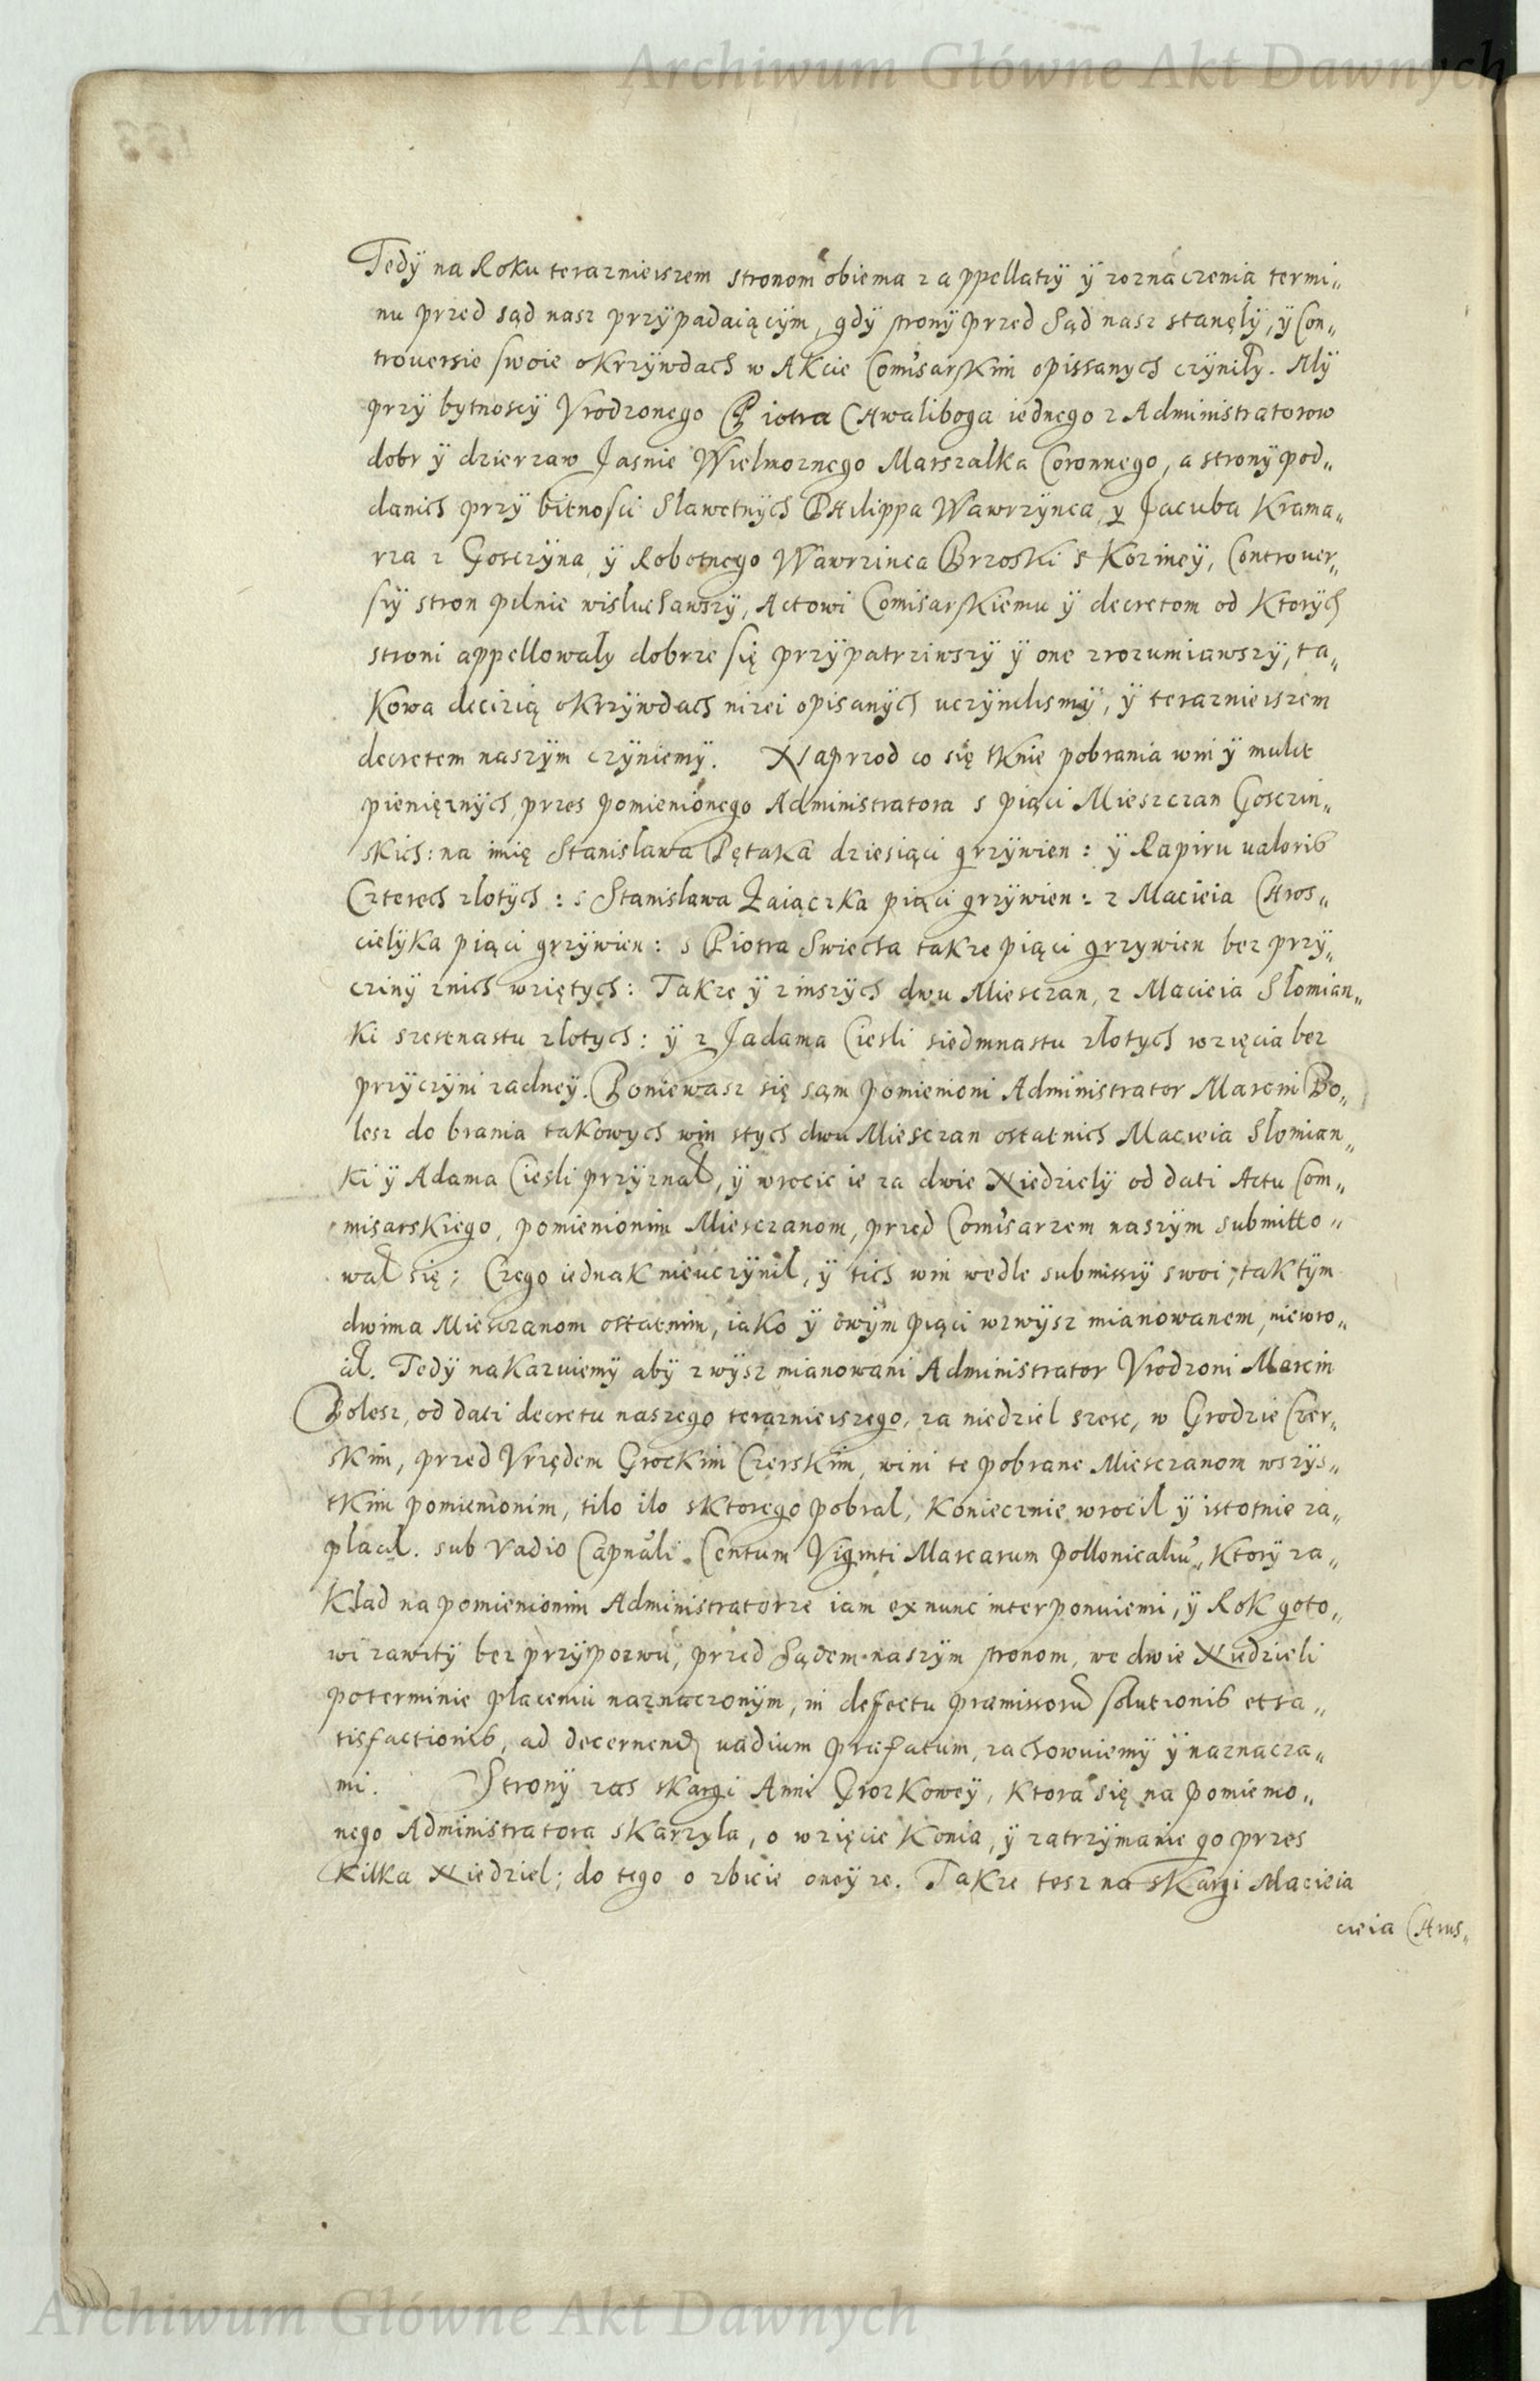 Archiwum Główne Akt Dawnych
Tedÿ na Roku terazniejszem stronom obiema z appellatiÿ ÿ zoznaczenia termi„
nu przed sąd nasz przÿpadaiącÿm, gdÿ stronÿ przed Sąd nasz stanęlÿ, ÿ Con„
trouersie swoie o krzÿwdach w Akcie Comisarskim opissanÿch czÿniłÿ. Mÿ
przÿ bytnoscÿ Vrodzonego Piotra Chwaliboga iednego z Administratorow
dobr ÿ dzierzaw Jasnie Wielmoznego Marszalka Coronnego, a stronÿ pod„
danich przÿ bitnosci Slawetnÿch Philippa Wawrzÿnca, y Jacuba Krama„
rza z Gosczÿna, ÿ Robotnego Wawrzinca Brzoski s Kozineÿ, Controuer„
sÿ stron pilnie wisluchawszÿ, Actowi Comisarskiemu ÿ decretom od Ktorÿch
stroni appellowałÿ dobrze się przÿpatrziwszÿ ÿ one zrozumiawszÿ, ta„
Kowa decizią o krzÿwdach nizei opisanÿch uczÿnilismÿ, ÿ terazniejszem
decretem naszÿm czÿniemÿ. Naprzod co się tknie pobrania win ÿ mulct
pienięznÿch, przes pomienionego Administratora s piąci Mieszczan Gosczin„
skich: na imię Stanislawa Pętaka dziesiąci grzÿwien: ÿ Rapiru ualoris
Czterech zlotÿch: s Stanislawa Zaiączka piąci grzÿwien: z Macieia Chros„
cielÿka piąci grzÿwien: s Piotra Swiecha takze piąci grzywien bez przÿ„
cziny znich wziętÿch: Takze ÿ z inszÿch dwu Miesczan, z Macieia Słomian„
ki szesnastu zlotÿch: ÿ z Jadama Ciesli siedmnastu złotÿch wzięcia bez
przÿczÿni zadneÿ. Poniewasz się sąm pomienioni Administrator Marcin Bo„
lesz do brania takowych win stych dwu Miesczan ostatnich Macieia Słomian„
ki ÿ Adama Ciesli przÿznał, ÿ wrocic ie za dwie Niedzielÿ od dati Actu Com„
misarskiego, pomienionim Miesczanom, przed Comisarzem naszÿm submitto„
wał się; Czego iednak nieuczÿnil, ÿ tich win wedle submissiÿ swoi, tak tÿm
dwima Miesczanom ostatnim, iako ÿ owÿm piąci wzwÿsz mianowanem, niewro„
cił. Tedÿ nakazuiemÿ abÿ zwÿsz mianowani Administrator Vrodzoni Marcin
Bolesz, od dati decretu naszego terazniejszego, za niedziel szesc, w Grodzie Czer„
skim, przed Vrzędem Grockim Czerskim, wini te pobrane Miesczanom wszÿs„
tkim pomienionim, tilo ilo s ktorego pobral, koniecznie wrocil ÿ istotnie za„
placil. sub vadio Capnali Centum Viginti Marcarum pollonicaliu, Ktorÿ za„
Kład na pomienionim Administratorze iam ex nunc interponuiemi, ÿ Rok goto„
wi zawitÿ bez przÿpozwu, przed Sądem naszÿm stronom, we dwie Niedzieli
po terminie placeniu naznaczonÿm, in defectu præmissoru solutionis et sa„
tisfactionis, ad decernend uadium præfatum, zachowuiemÿ ÿ naznacza„
mi. Stronÿ zas skargi Anni Grozkoweÿ, Ktora się na pomienio„
nego Administratora skarzyla, o wzięcie Konia, ÿ zatrzÿmanie go przes
Kilka Niedziel; do tego o zbicie oneÿ ze. Takze tesz na skargi Macieia
cieia Chros„
Archiwum Główne Akt Dawnych